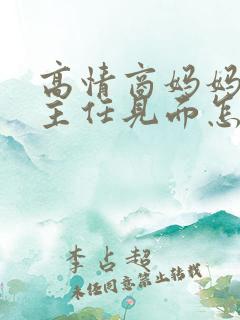 高情商妈妈
主任见面怎
李占超
未经同意禁止转载